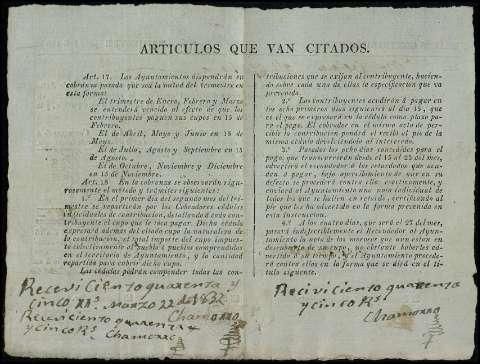 ARTICULOS QUE VAN CITADOS.
Art. 17. Los Ayuntamientos dispondrán su
cobranza pasada que sea la mitad del trimestre en
esta forma:
El trimestre de Enero, Febrero y Marzo
se entenderá vencido al efecto de que los
contribuyentes paguen sus cupos en 15 de
Febrero.
El de Abril, Mayo y Junio en 15 de
Mayo.
El de Julio, Agosto y Septiembre en 15
de Agosto.
El de Octubre, Noviembre y Diciembre
en 15 de Noviembre.
Art. 18 En la cobranza se observarán rigu-
rosamente el método y trámites siguientes:
1.º En el primer dia del segundo mes del tri-
mestre se repartirán por los Cobradores cédulas
individuales de contribucion, detallando á cada con-
tribuyente el cupo que le toca pagar. Dicha cédula
expresará ademas del citado cupo la naturaleza de
la contribucion, el total importe del cupo impues-
to colectivamente al pueblo ó pueblos comprendidos
en el territorio de Ayuntamiento, y la cantidad
repartida para cobrir dicho cupo.
Las cédulas podrán comprender todas las con-
Recevi Ciento quarenta y
cinco Rs. Marzo 22 de 1832
Chamorro
Receivi ciento quarenta
y cinco Rs
Chamorro
tribuciones que se exijan al contribuyente, hacien-
do sobre cada una de ellas la especificacion que va
prevenida.
2.º Los contribuyentes acudirán á pagar en
los ocho primeros dias siguientes al dia 15,
que es el que se expresará en la cédula como plazo pa-
ra el pago. El cobrador en el mismo acto de per-
cibir la contribucion pondrá el recibo al pie de la
misma cédula devolviéndola al interesado.
3.º Pasados los ocho dias concedidos para el
pago, que transcurrirán desde el 15 al 23 del mes,
advertirá el recaudador á los retardados que acu-
dan á pagar, bajo apercibimiento de que en su
defecto se procederá contra ellos executivamente, y
enviará al Ayuntamiento nota individual de
todos los que se hallen en retardo, certificando al
pie que les ha avisado en la forma prevenida en
esta instruccion.
4.º A los cuatro dias, que será el 27 del mes,
pasará indefectiblemente el Recaudador al Ayun-
tamiento la nota de los morosos que aun estén en
descubierto de sus cupos, no obstante haberles co-
nvenido á su tiempo, y el Ayuntamiento procederá
contra ellos en la forma que se dirá en el título
siguiente.
Receivi ciento quarenta
y cinco Rs
Chamorro